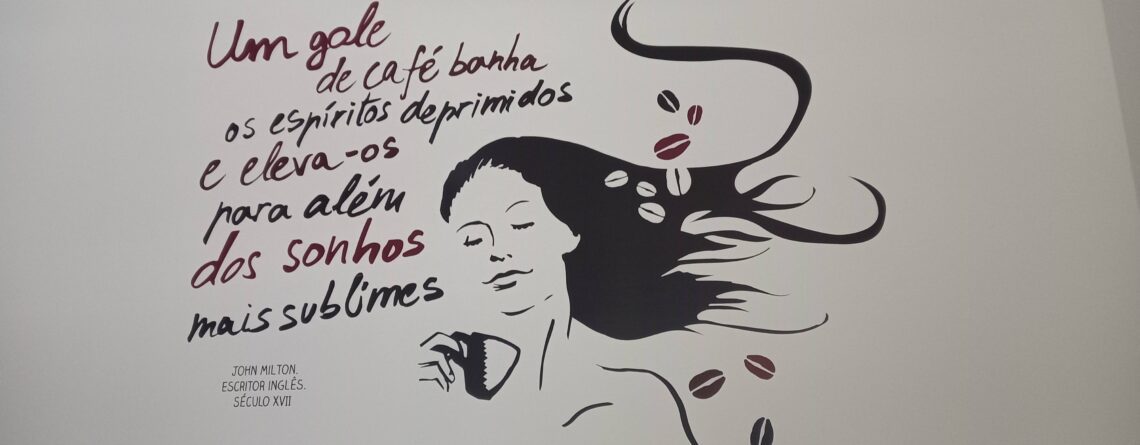 Um gole
de café banha
os espíritos deprimidos
e eleva-os
para além
dos sonhos
mais sublimes
JOHN MILTON.
ESCRITOR INGLÊS.
SÉCULO XVII